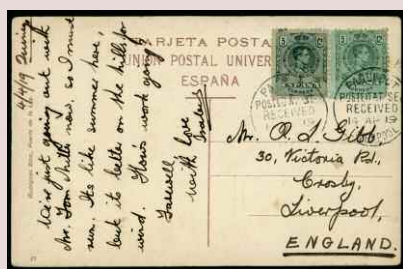 4/4/19
We're just going out with
Mr. Tom Whith now, so I must
run. Its like summer here,
but its better on the hills for
wind. How's work going?
Farewell
with love
TARJETA POSTAL
UNION POSTAL UNIVERSAL
ESPAÑA
5 5
PAQUEBOT
POSTED AT SEA
RECEIVED
PAQUEBOT
POSTED AT SEA
RECEIVED
14 AP 19
LIVERPOOL
Mr. O. L. Gibb,
30, Victoria Rd.,
Crosby,
Liverpool,
ENGLAND.